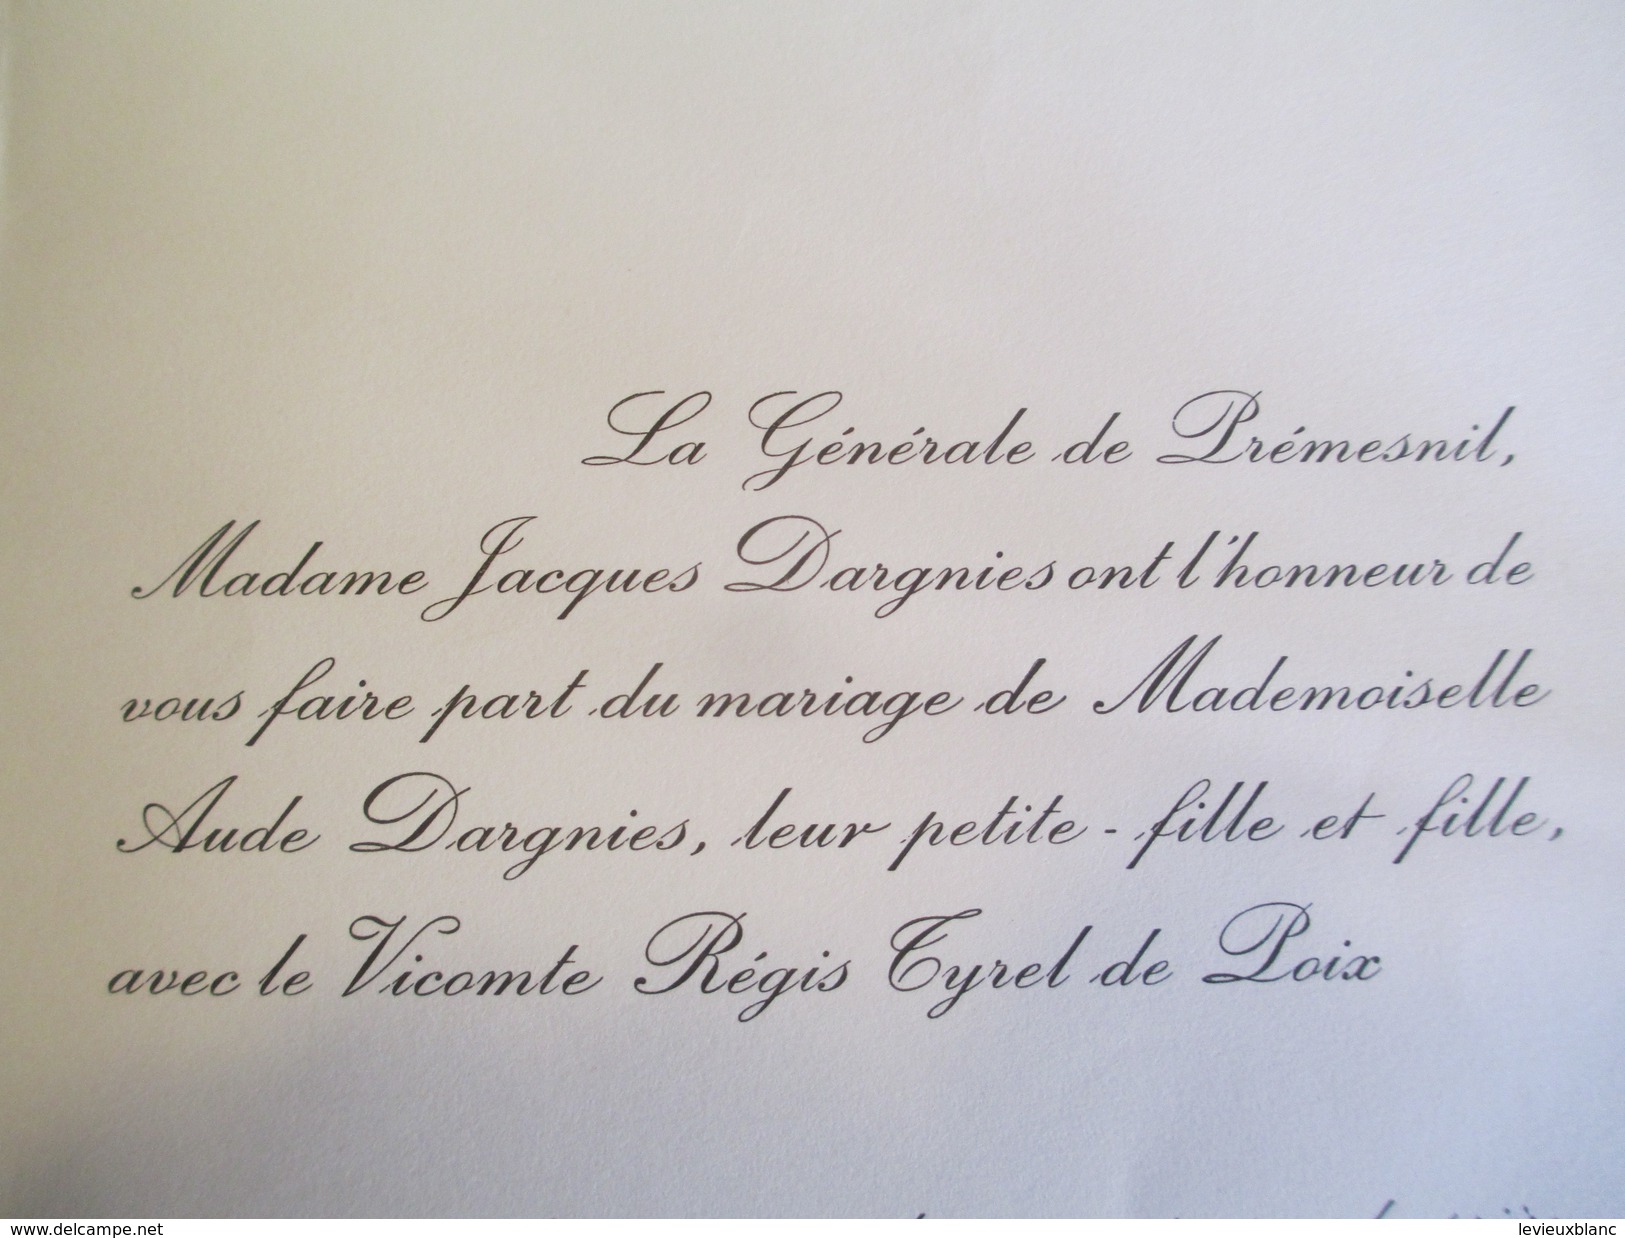 La Générale de Prémesnil,
Madame Jacques Dargnies ont l'honneur de
vous faire part du mariage de Mademoiselle
Aude Dargnies, leur petite - fille et fille,
avec le Vicomte Régis Tyrel de Poix
www.delcampe.net
levieuxblanc